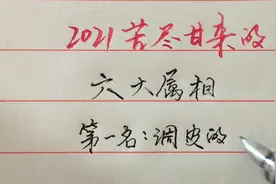 2021苦尽甘来的
六大属相
第一名:调皮的